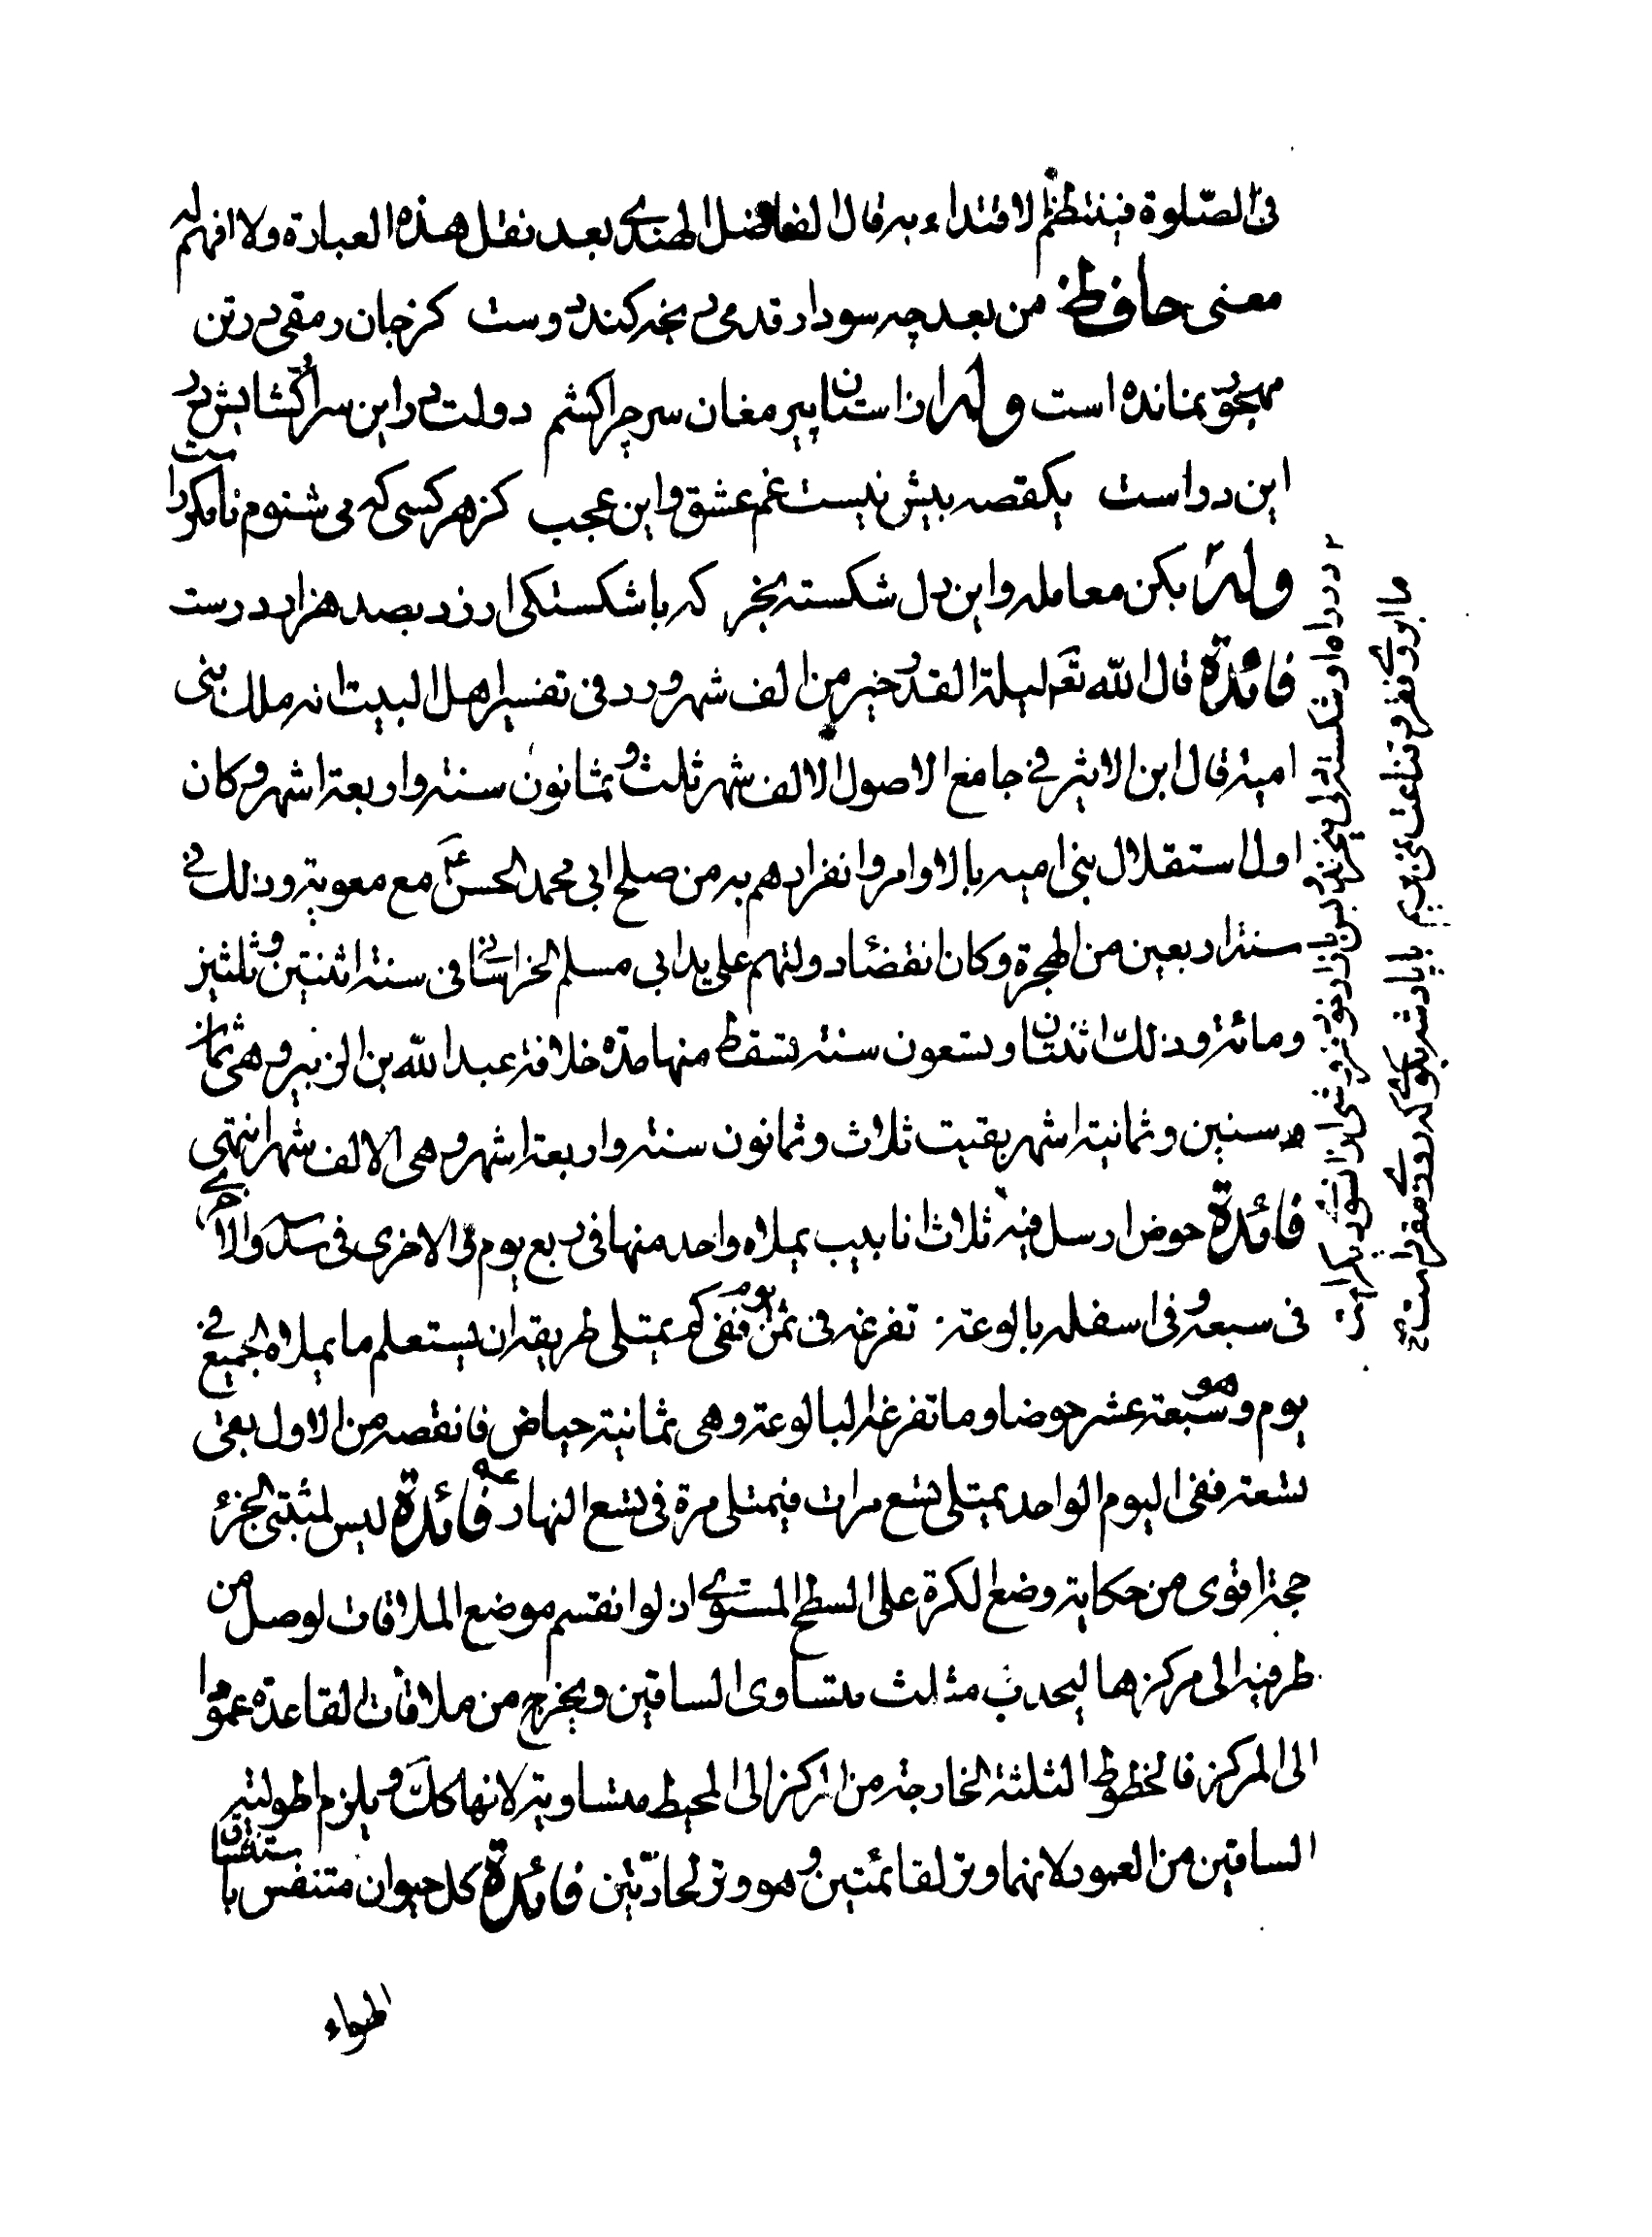 فی الصّلوة فینتظم الاقتداء به قال الفاضل الهندی بعد نقل هذه العبارة ولا افهم له
معنی حافظ من بعد چه سود ار قدمی رنجه کند دوست کز جان رمقی در تن
مهجور نمانده است وله از استان پیر مغان سر چرا کشم دولت در این سرا گشایش در
این در است یکقصه بیش نیست غم عشق و این عجب کز هر کسی که می شنوم نامکرر است
وله بکن معامله و این دل شکسته بخر که با شکستگی ارزد بصد هزار درست
فائدة قال الله تعٰ لیلة القدر خیر من الف شهر ورد فی تفسیر اهل البیت انه ملک بنی
امیة قال ابن الاثیر فی جامع الاصول الالف شهر ثلث و ثمانون سنة و اربعة اشهر و کان
اول استقلال بنی امیه بالاوامر وانفرادهم به من صلح ابی محمد الحسن ع مع معویة وذلک فی
سنة اربعین من الهجرة وکان انقضاء دولتهم علی ید ابی مسلم الخراسانی فی سنة اثنتین و ثلثین
ومائة وذلک اثنتان وتسعون سنة تسقط منها مدة خلافة عبد الله بن الزبیر وهی ثمان
سنین وثمانیة اشهر بقیت ثلاث وثمانون سنة واربعة اشهر وهی الالف شهر انتهی
فائدة حوض ارسل فیه ثلاث انابیب یملاه واحد منها فی ربع یوم والاخری فی سدسه والاخری
فی سبعه و فی اسفله بالوعة تفرغه فی ثمن یوم ففی کم یمتلی طریقه ان یستعلم ما یملاه الجمیع فی
یوم وهو سبعة عشر حوضا وما تفرغه البالوعة وهی ثمانیة حیاض فانقصه من الاول یبقی
تسعة ففی الیوم الواحد یمتلی تسع مرات فیمتلی مرة فی تسع النهار فائدة لیس لمثبتی الجزء
حجة اقوی من حکایة وضع الکرة علی السطح المستوی اذ لو انقسم موضع الملاقات لوصل من
طرفیه الی مرکزها لیحدث مثلث متساوی الساقین ویخرج من ملاقات القاعدة عمودا
الی المرکز فالخطوط الثلثة الخارجة من المرکز الی المحیط متساویة لانها کلک و یلزم اطولیة
الساقین من العمود لانهما وتر القائمتین و هو وتر الحادتین فائدة کل حیوان متنفس باستنشاق
الهواء
در راه او شکسته دلی میخرند و بس بازار خود فروشی از آنسوی دیگر است
ما ابروی فقر و قناعت نمی بریم با پادشه بگوی که روزی مقدر است